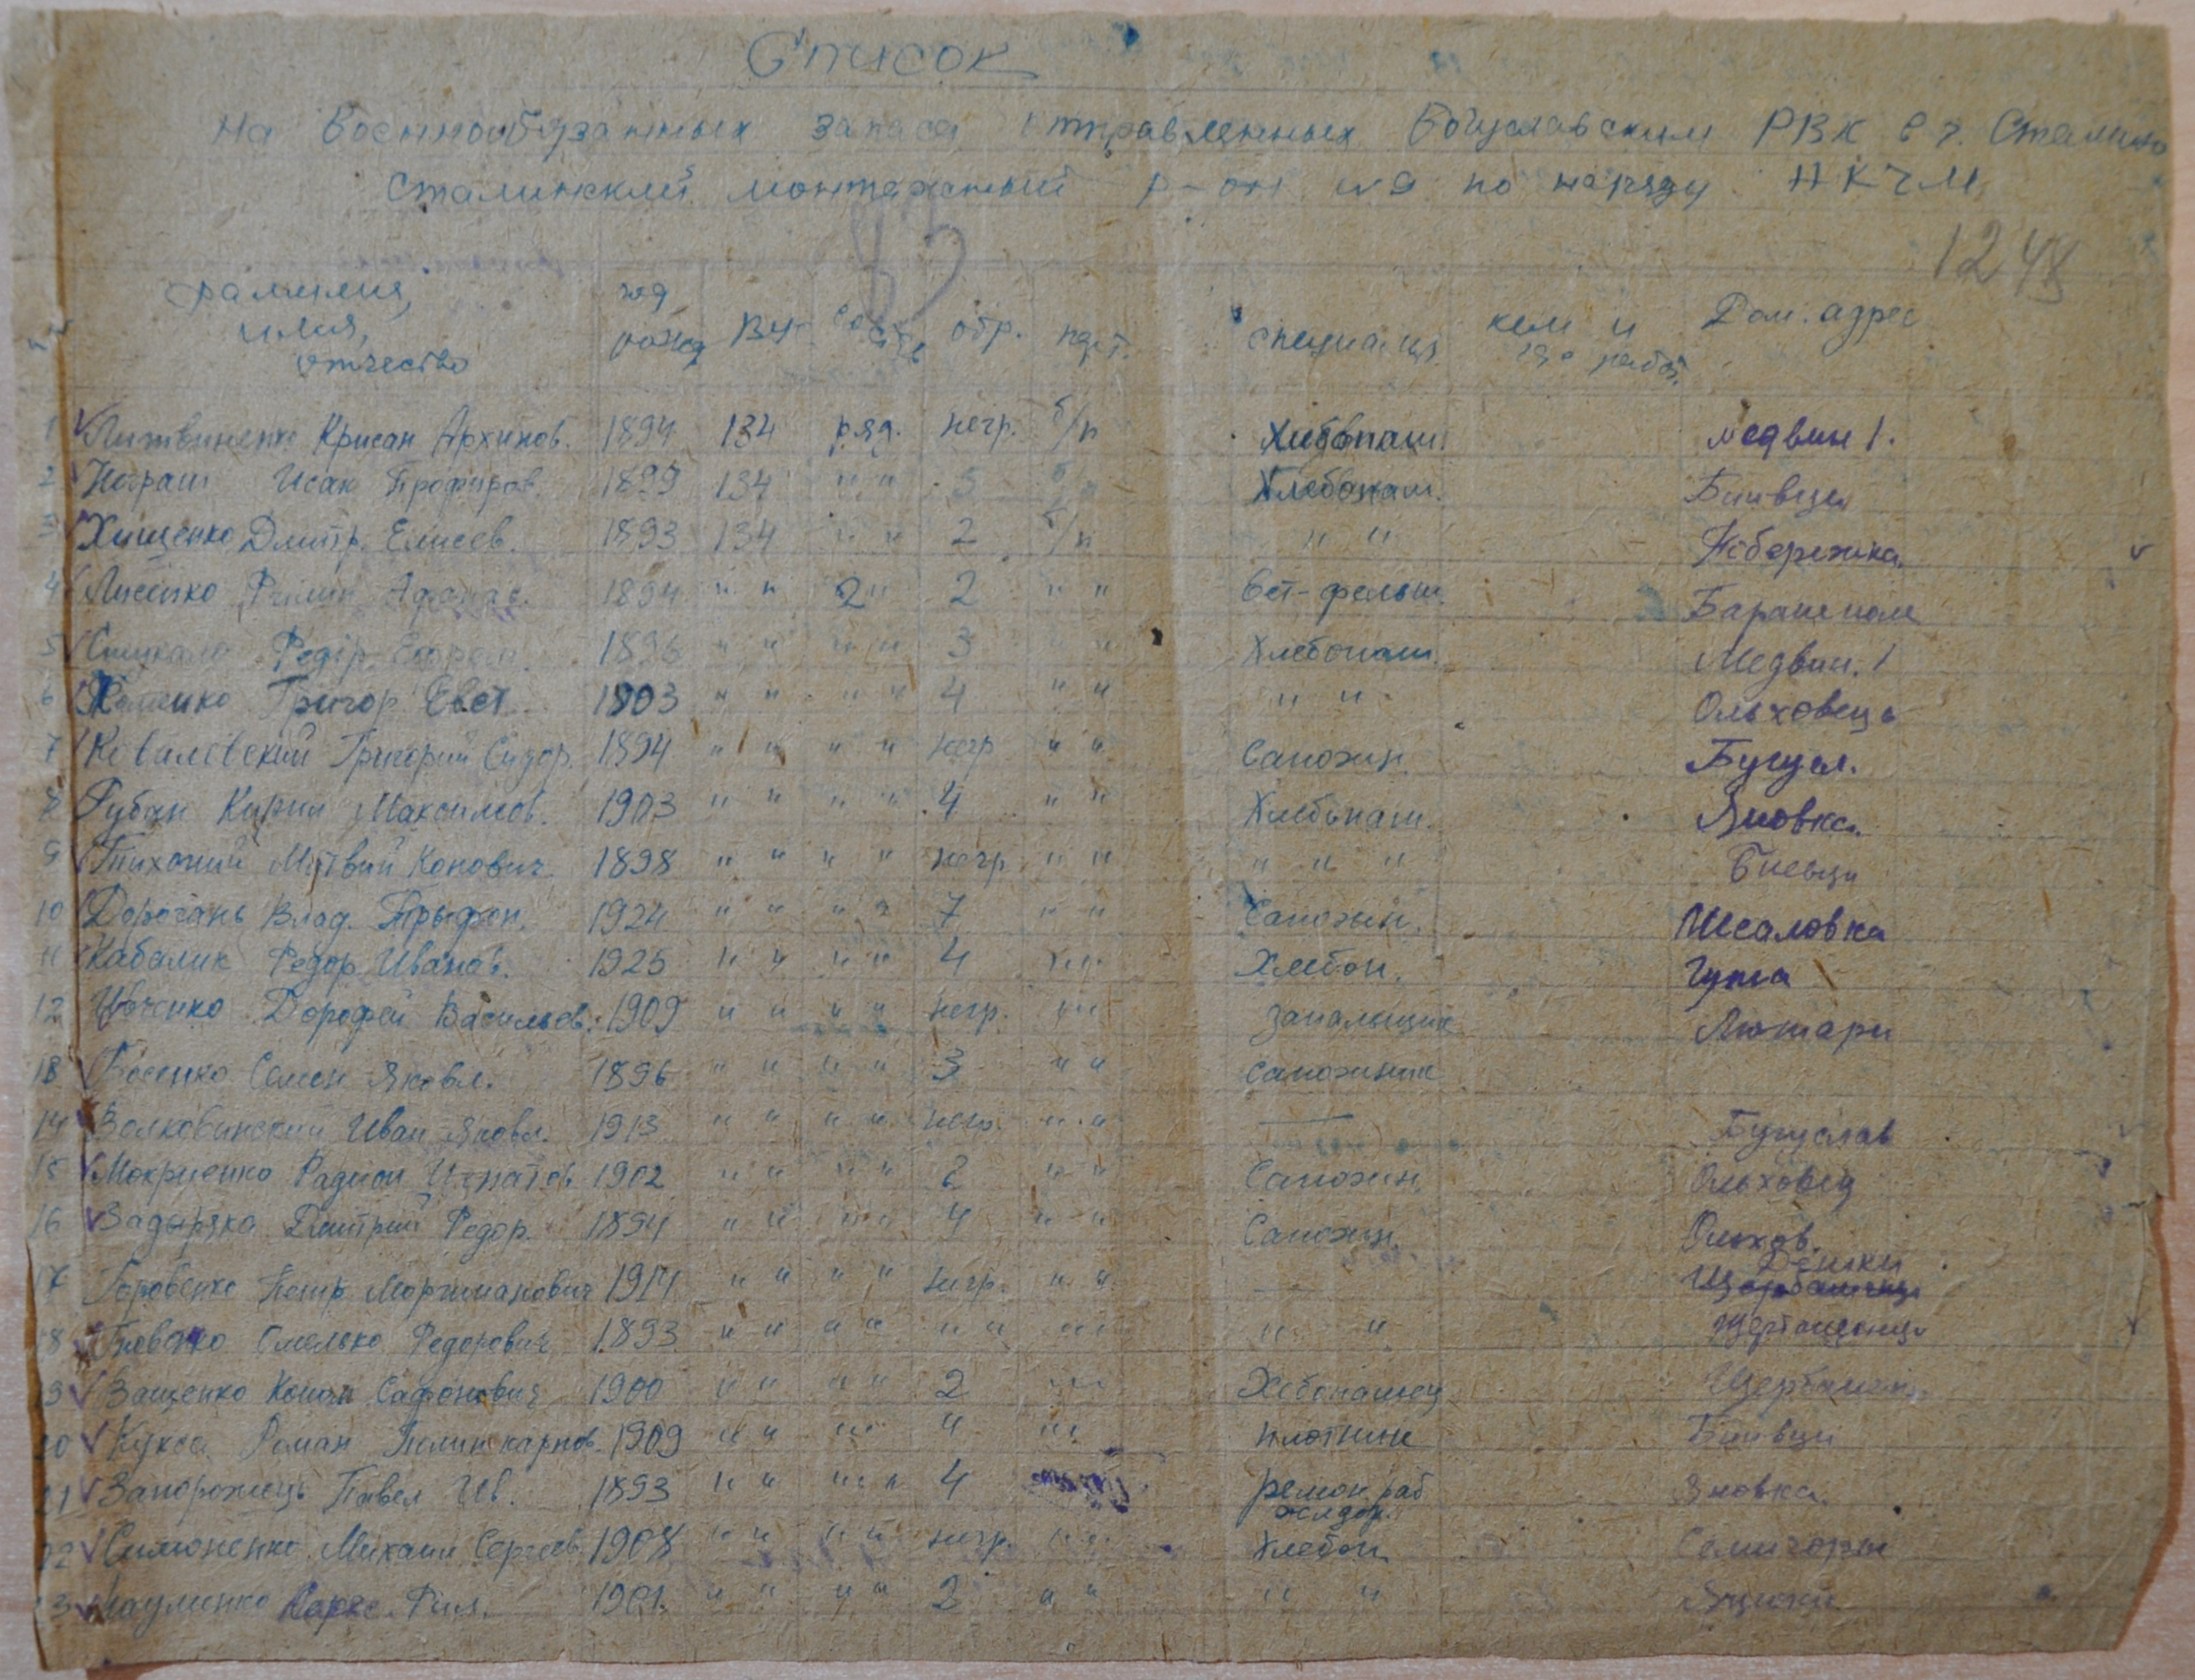 Список
на военнообязанных запаса отправленных Богуславским РВК в г. Сталино
Сталинский монтажный р-он по наряду НКЧМ
83
1248
фамилия, имя, отчество год рожд ВУ- состав обр. парт. специальн. кем и где работ. Дом. адрес
1 Литвиненко Крисан Архипов. 1894 134 ряд. негр. б/п Хлебопаш. Медвин 1.
2 Исак Профиров. 1899 134 " " 3 б/п Хлебопаш. Биивци
3 Хищенко Дмитр. Елисеев. 1893 134 " " 2 б/п " " Набережка
4 Лисенко Филип Афанас. 1894 " " 2" 2 " " Вет-фельш.
5 Федір Ефрем. 1896 " " " " 3 " " Хлебопаш. Медвин. 1
6 Григор Евст. 1903 " " " " 4 " " " " Ольховець
7 Ковалевский Григорий Сидор. 1894 " " " " негр " " Сапожн. Бугусл.
8 Губан Кирил Максимов. 1903 " " " " 4 " " Хлебопаш. Яновка
9 Тихоний Матвий Конович 1898 " " " " негр " " " " " Биевци
10 Дорогань Влад. Трыфон. 1924 " " " " 7 " " Сапожн. Исаловка
11 Кабалик Федор Иванов. 1925 " " " " 4 " " Хлебоп. Гута
12 Дорофей Васильев. 1909 " " " " негр. " " запальщик Лютари
13 Босенко Семен Яковл. 1896 " " " " 3 " " сапожник
14 Волковинский Иван Яковл. 1913 " " " " негр. " " — Бугуслав
15 Мокриенко Радион Игнатов 1902 " " " " 2 " " Сапожн. Ольховец
16 Задыряка Дмитрий Федор. 1894 " " " " 4 " " Сапожн. Ольхов.
17 Петр 1914 " " " " негр. " " — Дешки
18 Омелько Федорович 1893 " " " " " " " " " "
19 Ващенко Конон Сафонович 1900 " " " " 2 " " Хебопашец Щербашен.
20 Кукса Роман Поликарпов. 1909 " " " " 4 " " плотник Биивци
21 Запорожець Павел Ив. 1893 " " " " 4 ремон. раб желдор. Яновка
22 Симоненко Михаил Сергеев 1908 " " " " негр. " " Хлебоп. Семигоры
23 Науменко Фил. 1901. " " " " 2 " " " " Яцюки